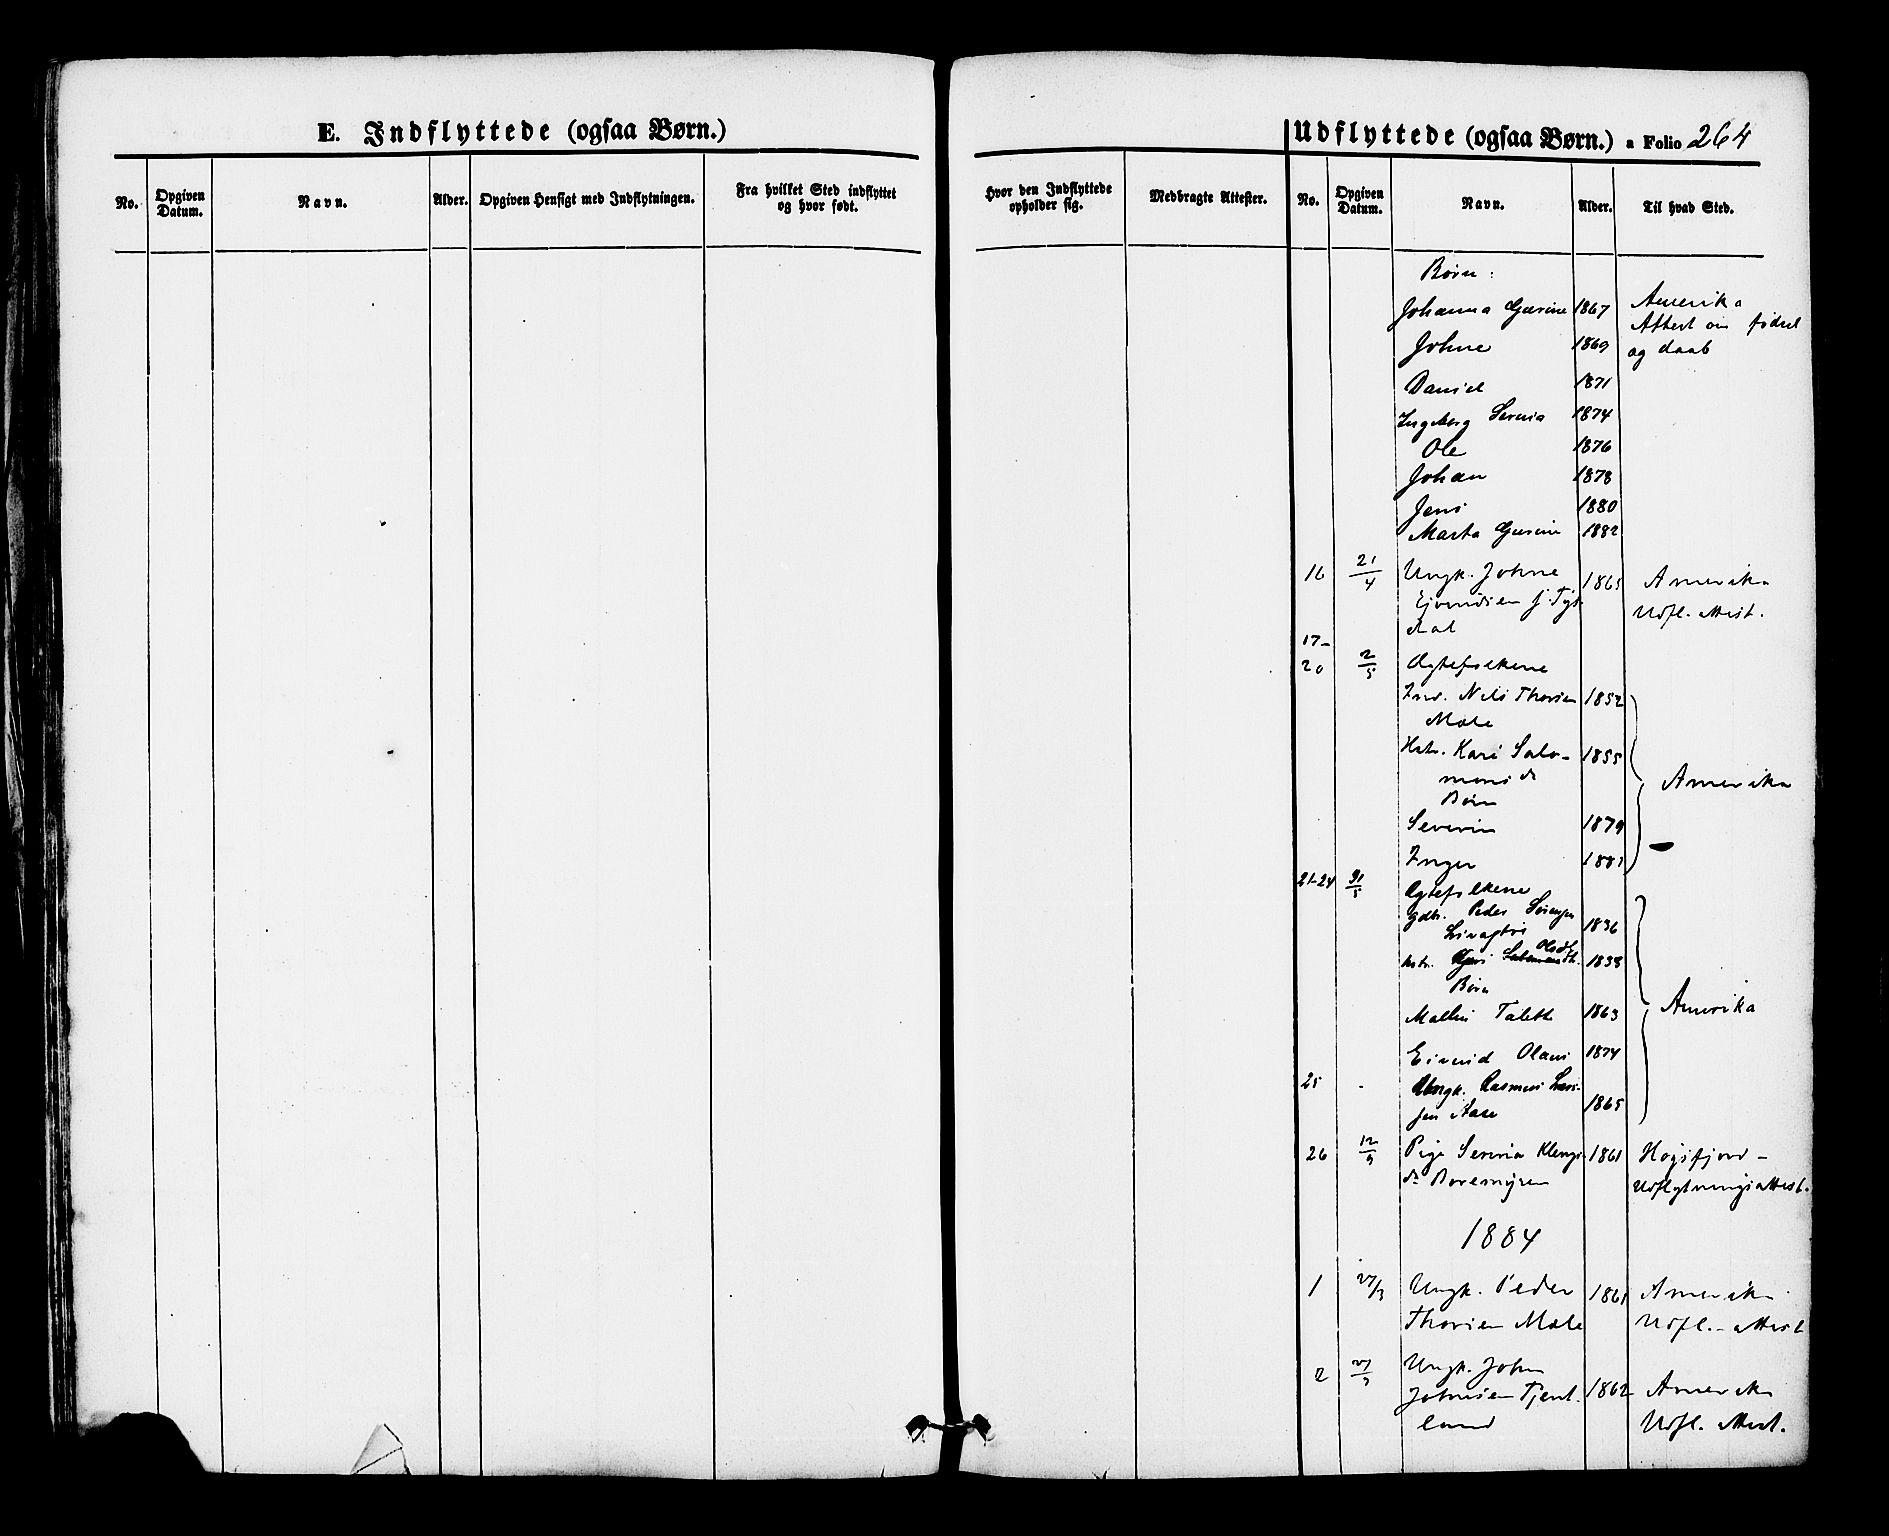 E. Indflyttede (ogsaa Børn.)
Udflyttede (ogsaa Børn.) a Folio 264
No.
Opgiven Datum.
Navn.
Alder.
Opgiven Hensigt med Indflytningen.
Fra hvilket Sted indflyttet
og hvor født.
Hvor den Indflyttede
opholder sig.
Medbragte Attester.
No.
Opgiven Datum.
Navn.
Alder.
Til hvad Sted.
Børn:
Johanna Gurine 1867 Amerika
Attest om fødsel
Johne 1869 og daab
Daniel 1871
Ingeborg Serina 1874
Ole 1876
Johan 1878
Jens 1880
Marta Gurine 1882
16 21/4 Ungk. Johne 1865 Amerika
Ejvindsen f. Tjøs- Udfl. attest.
dal
17-
20 2/5 Ægtefolkene
Ind. Nils Thorsen 1852
Male
Hstr. Kari Salo- 1855
mons dr Amerika
Børn
Severin 1879
Inger 1881
21-24 31/5 Ægtefolkene
Gdbr. Peder Sørensen 1836
hstr. Olsdtr. 1838
Børn
Malli Talette 1863 Amerika
Eivind Olaus 1874
25 - Ungk. Rasmus Lar-
sen Aase 1865
26 12/9 Pige Serina Klengs- 1861 Høgsfjord -
dr Udflytningsattest.
1884
1 27/3 Ungk. Peder 1861 Amerika
Thorsen Male Udfl. - attest
2 27/3 Ungk. John 1862 Amerika
Johnsen Tjent-
land Udfl. attest.